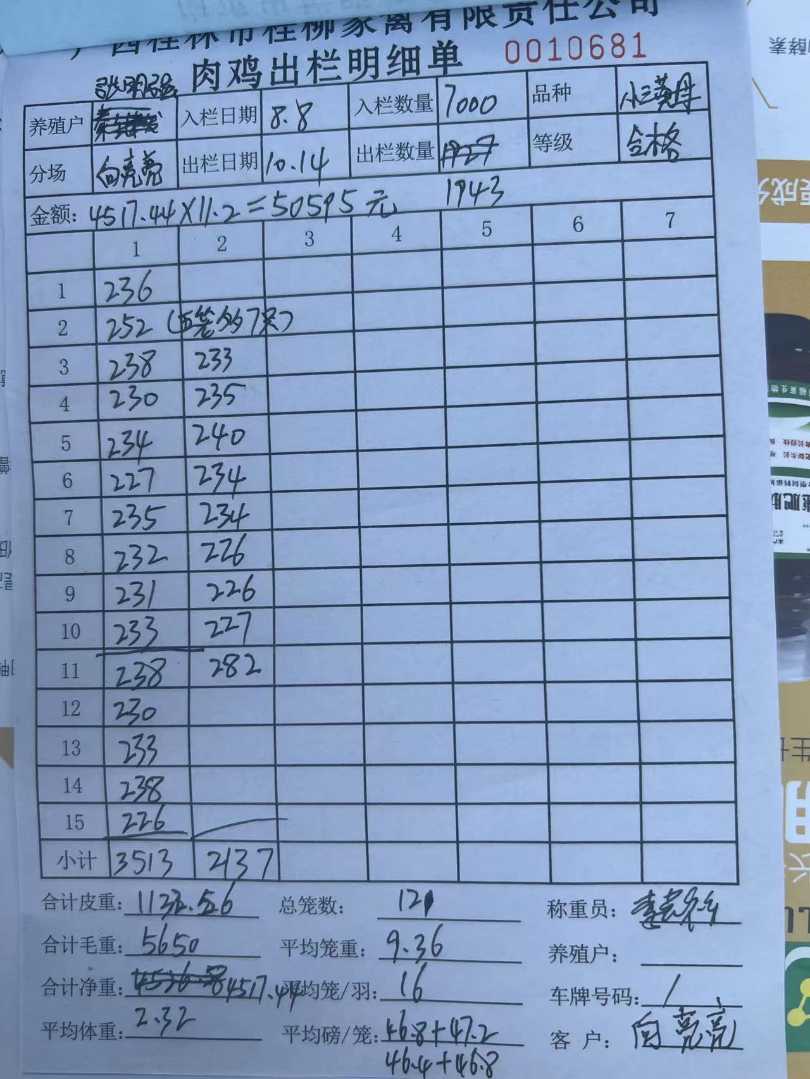 广西桂林市桂柳家禽有限责任公司
肉鸡出栏明细单 0010681
养殖户 入栏日期 8.8 入栏数量 7000 品种
分场 向亮亮 出栏日期 10.14 出栏数量 1927 等级 合格
1943
金额: 4517.44×11.2=50595元
1 2 3 4 5 6 7
1 236
2 252 (五笼多7只)
3 238 233
4 230 235
5 234 240
6 227 234
7 235 234
8 232 226
9 231 226
10 233 227
11 238 282
12 230
13 233
14 238
15 226
小计 3513 2137
合计皮重: 1132.56 总笼数: 121 称重员:
合计毛重: 5650 平均笼重: 9.36 养殖户:
合计净重: 4517.44 平均笼/羽: 16 车牌号码: /
平均体重: 2.32 平均磅/笼: 46.8+47.2 客户: 向亮亮
46.4+46.8